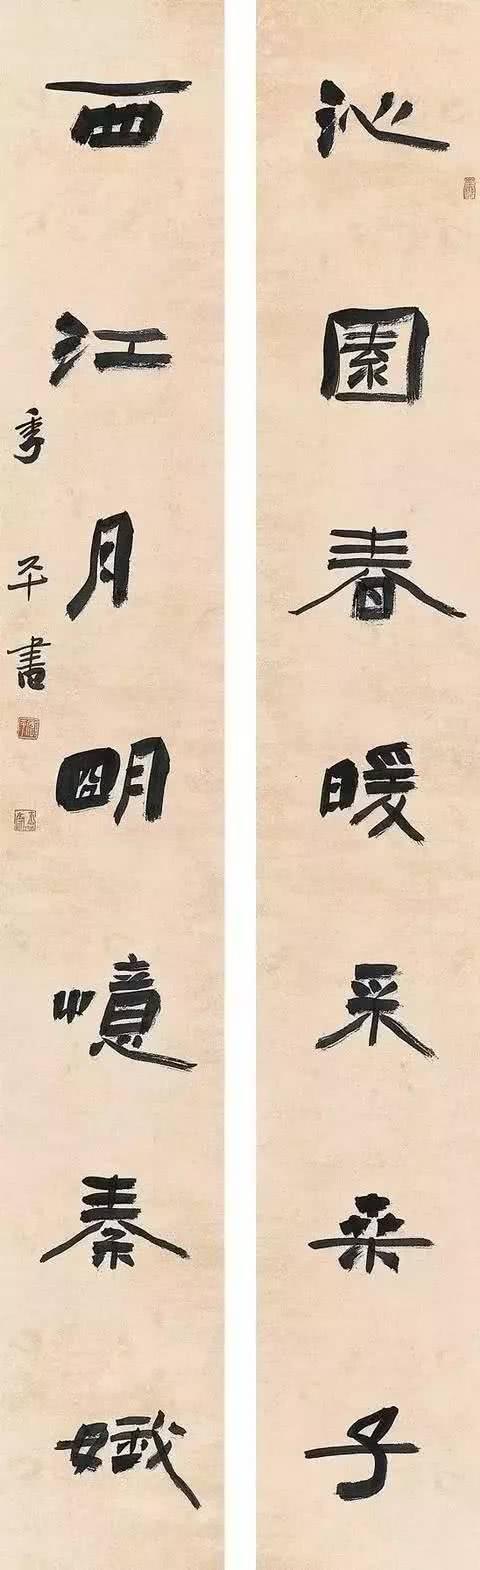 沁園春暖采桑子
西江月明憶秦娥
季平書